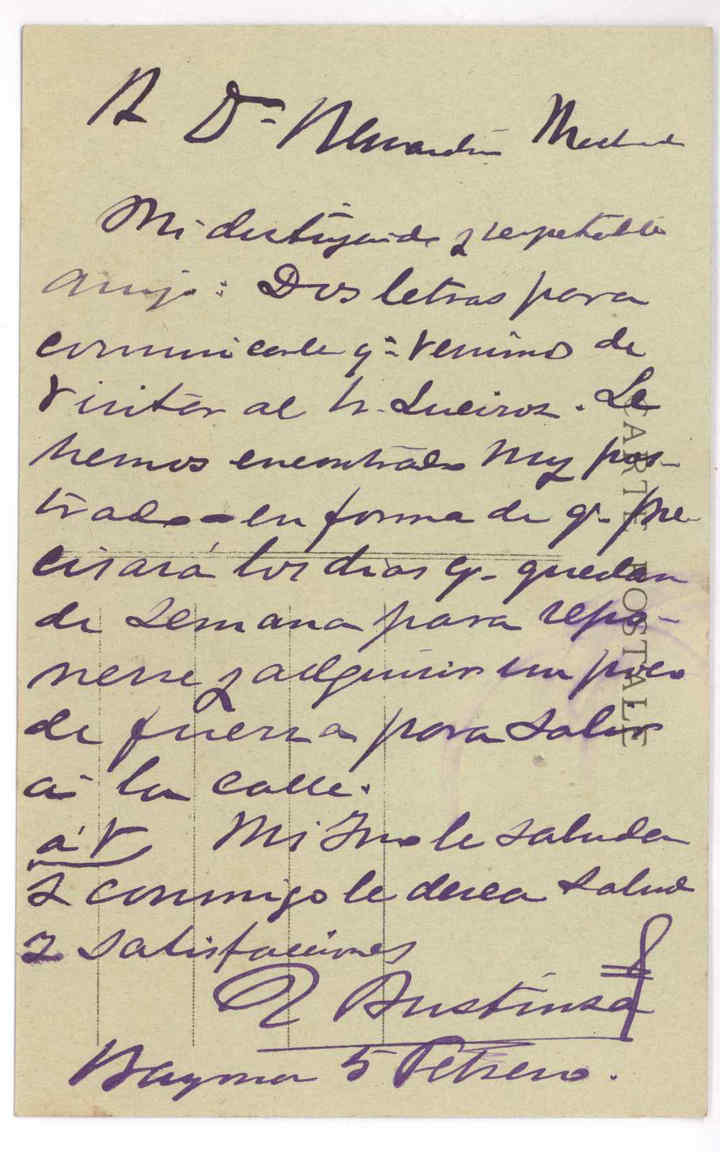 A Dn. Bernardino Machado
Mi distinguido y respetable
amigo: Dos letras para
comunicarle q.e venimos de
visitar al Sr. Queiroz. Le
hemos encontrado muy pos-
trado en forma de q.e pre-
cisará los dias q.e quedan
de semana para repo-
nerse y adquirir un poco
de fuerza para salir
á la calle.
á V. Mi Juno le saludan
y conmigo le desea salud
y satisfacciones
Austinsa
Bayona 5 Febrero.
CARTE POSTALE